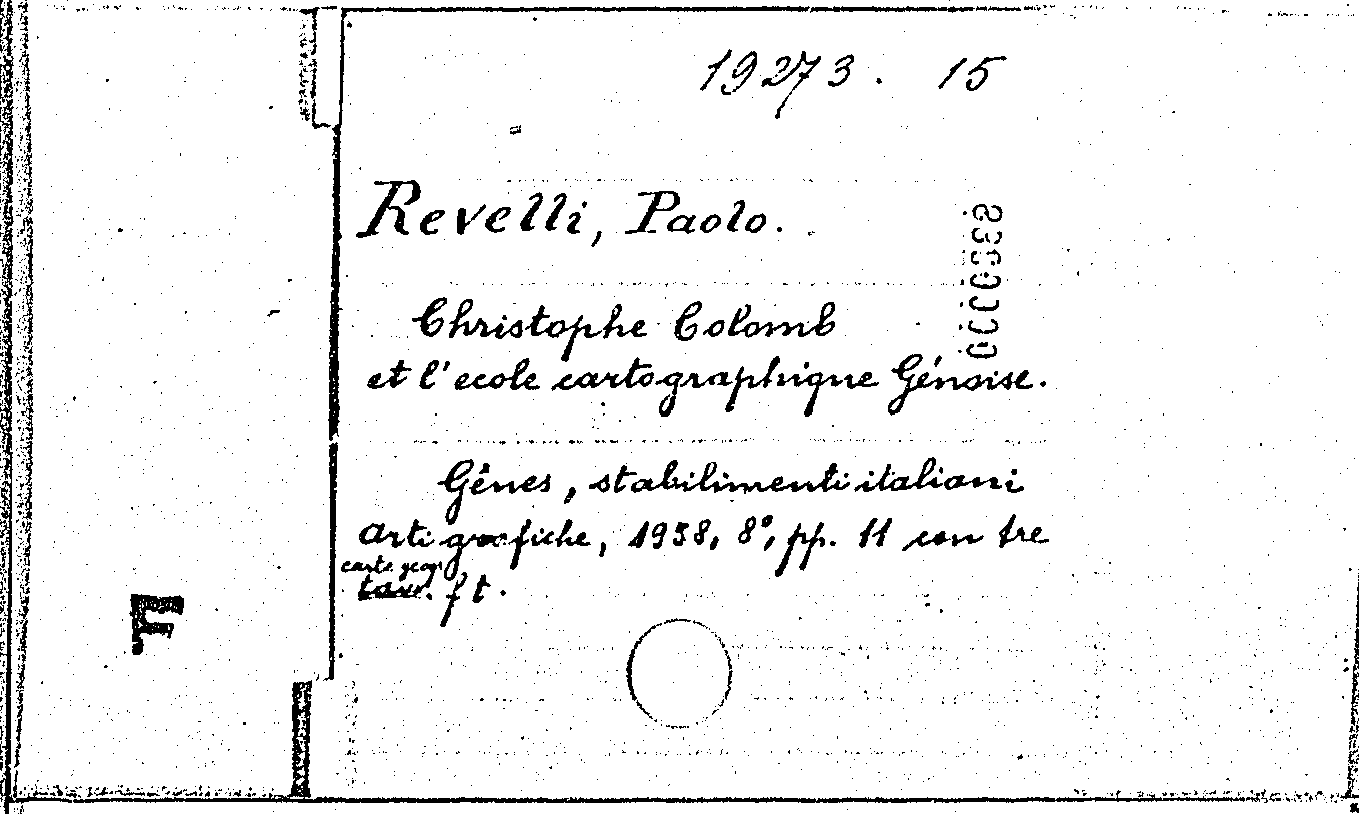 19273. 15
Revelli, Paolo.
Christophe Colomb
et l'ecole cartographique Génoise.
Gênes, stabilimenti italiani
arti grafiche, 1938, 8°, pp. 11 con tre
carte geogr.
tavv. f t.
F